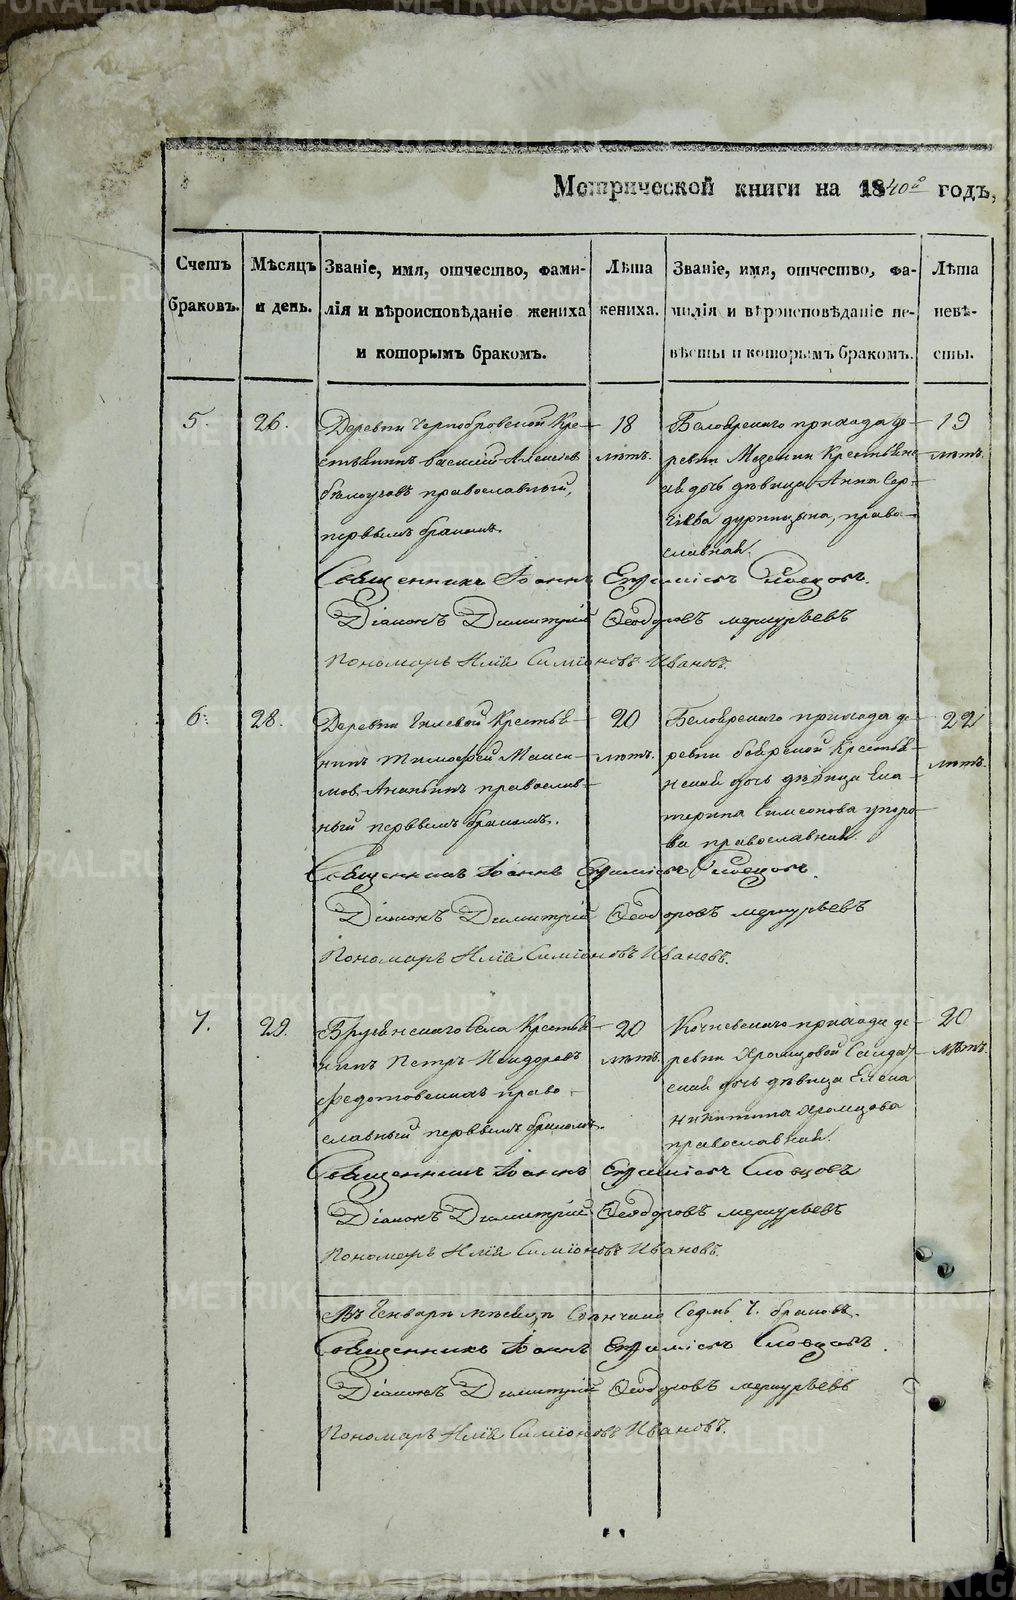 Метрической книги на 1840º годъ,
Счетъ браковъ.
Мѣсяцъ и день.
Званіе, имя, отчество, фами-
лія и вѣроисповѣданіе жениха
и которымъ бракомъ.
Лѣта
жениха.
Званіе, имя, отчество, фа-
милія и вѣроисповѣданіе не-
вѣсты и которымъ бракомъ.
Лѣта
невѣ-
сты.
5.
26.
Деревни Чернобровской Кре-
стьянинъ Василій Алексѣевъ
бѣлоусовъ православный,
первымъ бракомъ.
18
лѣтъ.
Белоярскаго прихода де-
ревни Мезенки Крестьянс-
ая дочь дѣвица Анна Сер-
гѣева, право-
славная.
19
лѣтъ.
Священникъ Іоаннъ Словцовъ.
Діаконъ Димитрій Ѳеодоровъ меркурьевъ
Пономарь Илія Симіоновъ Ивановъ.
6.
28.
Деревни Гилевой Крестья-
нинъ Тимофей Макси-
мов. Ананьинъ православ-
ный первымъ бракомъ.
20
лѣтъ.
Белоярскаго прихода де-
ревни боярской Крестья-
нская дочь дѣвица Ека-
терина Симеонова упоро-
ва православная.
22
лѣтъ.
Священникъ Іоаннъ Словцовъ.
Діаконъ Димитрій Ѳеодоровъ меркурьевъ
Пономарь Илія Симіоновъ Ивановъ.
7.
29.
Бруснянскаго Села Крестья-
нинъ Петръ Исидоровъ
федотовскихъ право-
славный первымъ бракомъ.
20
лѣтъ.
Кочневскаго прихода де-
ревни Храмцовой Салдат-
ская дочь дѣвица Елена
никитина Храмцова
православная.
20
лѣтъ.
Священникъ Іоаннъ Словцовъ
Діаконъ Димитрій Ѳеодоровъ меркурьевъ
Пономарь Илія Симіоновъ Ивановъ.
Въ Генварѣ мѣсяцѣ Свѣнчано Седмь 7. браковъ.
Священникъ Іоаннъ Словцовъ.
Діаконъ Димитрій Ѳеодоровъ меркурьевъ
Пономарь Илія Симіоновъ Ивановъ.
METRIKI.GASO-URAL.RU